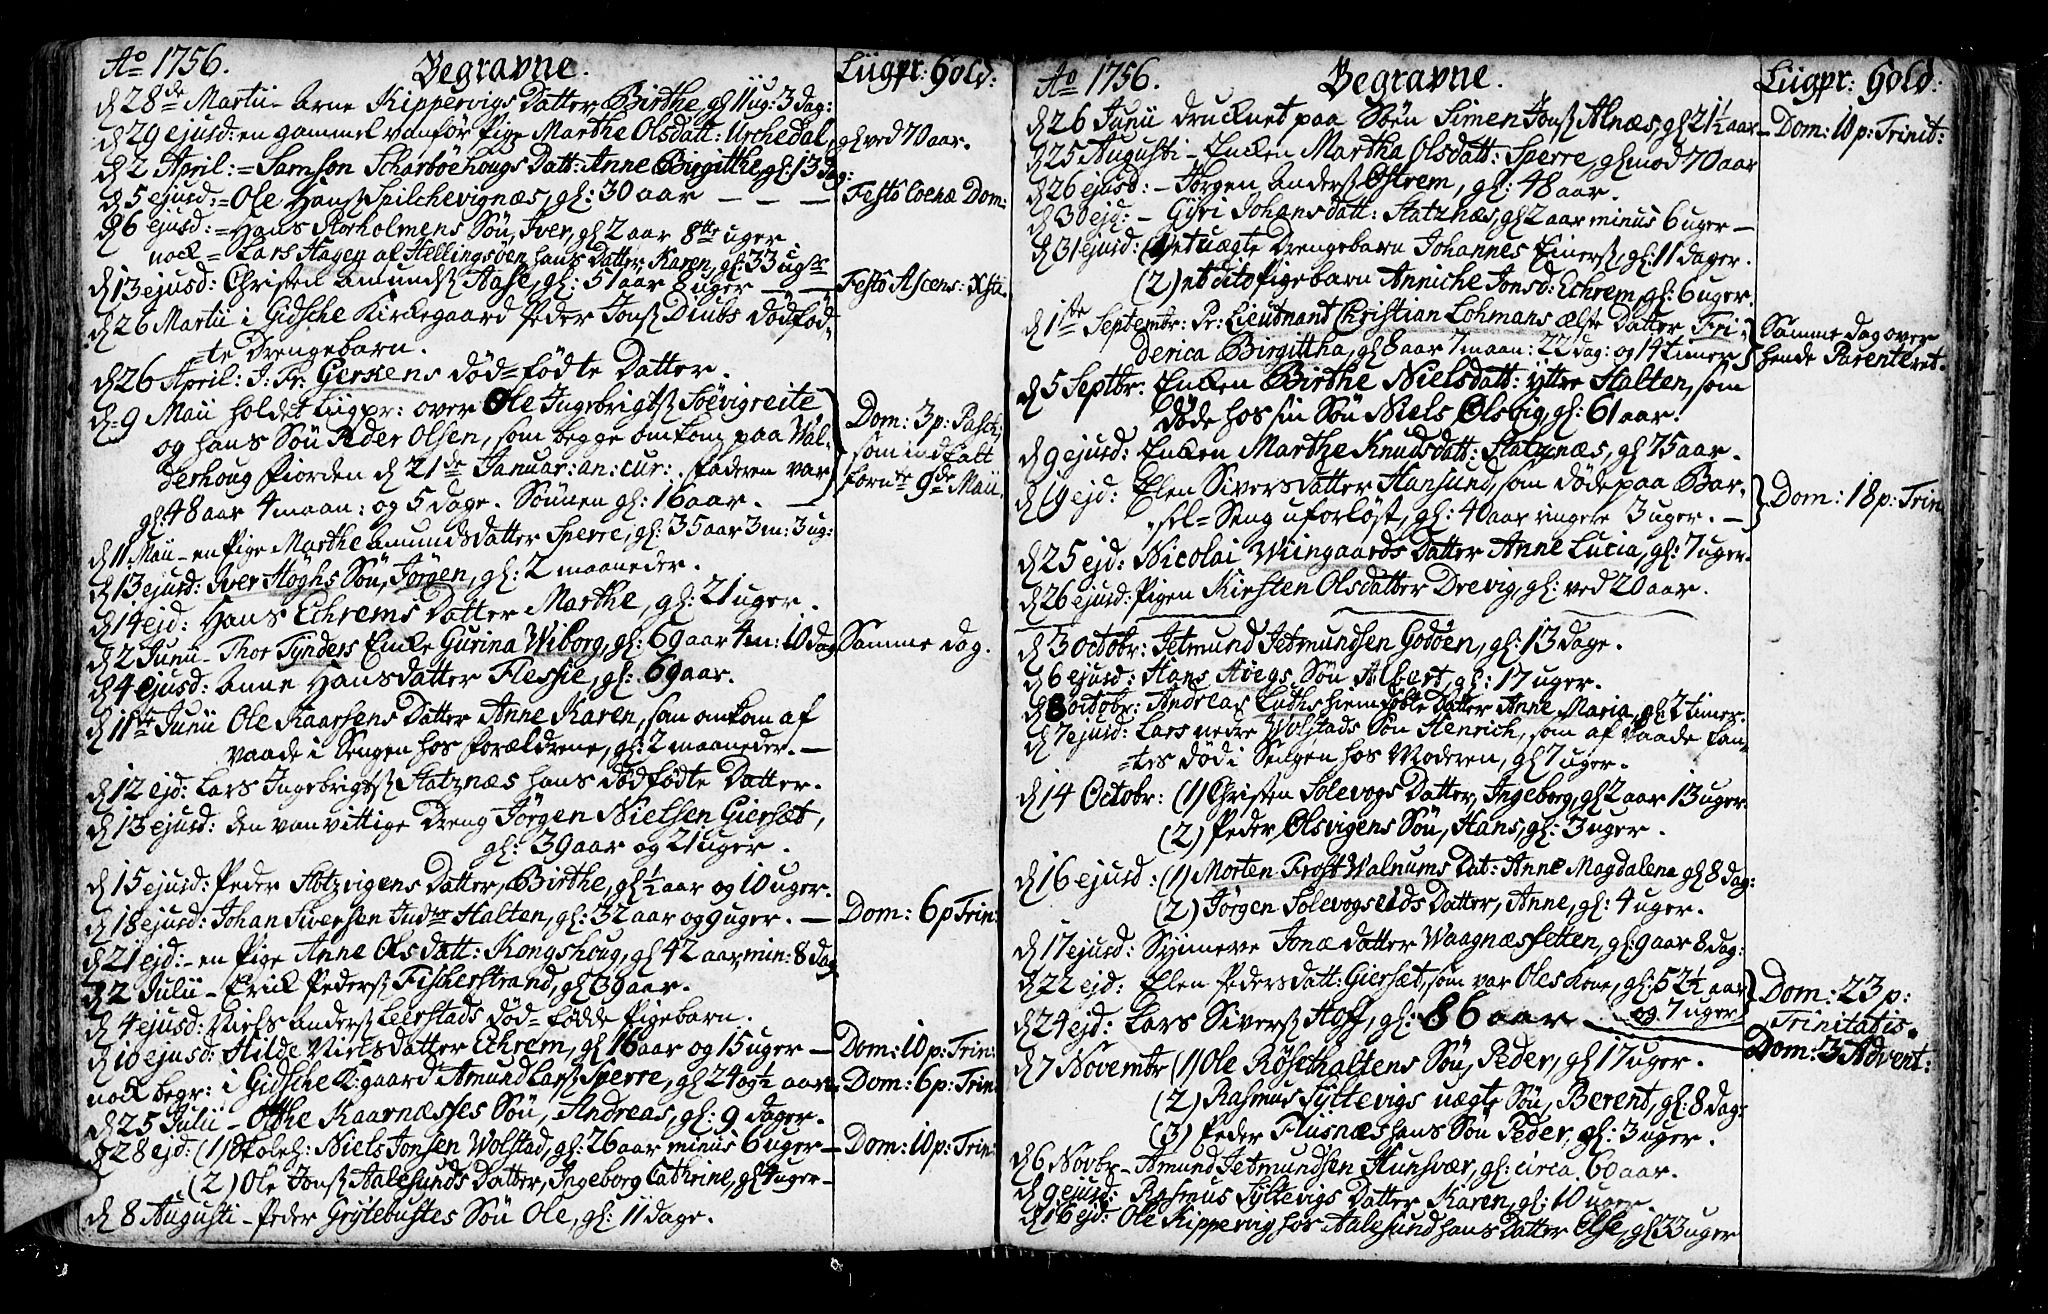 Ao 1756. Begravne. Liigpr: hold:
d 28de Martii - Arne Kippervigs Datter Birthe, gl: 11 ug: 3 dag:
d 29 ejusd: en gammel vanför Pige Marthe Olsdatt: Urchedal, gl ved 70 aar.
d 2 April: = Samson Scharböehougs Datt: Anne Birgitthe, gl: 13 dag:
d 5 ejusd: = Ole Hanss Spilchevignæs, gl: 30 aar — — — Festô Coenæ Dom:
d 6 ejusd: = Hans Storholmens Sön, Iver, gl 2 aar 8tte uger
nock = Lars Hagen af Hellingsöen hans Datter Karen, gl: 33 ugr
d 13 ejusd: Christen Amundss Aase, gl: 51 aar 8 uger — — Festô Ascens: Xsti.
d 26 Martii i Gidsche Kirckegaard Peder Jonss Diubs dödföd-
=te Drengebarn.
d 26 April: J. Fr: Gerskens död=födte Datter.
d: 9 Maii holdet Liigpr: over Ole Ingebrigtss Söevigreite
og hans Sön Peder Olsen, som begge omkom paa Wal-
derhoug Fiorden d 21de Januar: an: cur: . Faderen var
gl: 48 aar 4 maan: og 5 dage. Sönnen gl: 16 aar. —
Dom: 3 p: Pasch:
som indfalt
fornte 9de Maii.
d 11 Maii - en Pige Marthe Amundsdatter Sperre, gl: 35 aar 3 m: 3 ug:
d 13 ejusd: Iver Höghs Sön, Jörgen, gl: 2 maaneder.
d 14 ejd: Hans Echrems Datter Marthe, gl: 21 uger.
d 2 Junii - Thor Tynders Encke Gurina Wiborg, gl: 69 aar 4 m: 10 dag Samme dag.
d 4 ejusd: Anne Hansdatter Flessie, gl: 69 aar.
d 11te Junii Ole Kaarsens Datter Anne Karen, som omkom af
vaade i Sengen hos Forældrene, gl: 2 maaneder. —
d 12 ejd: Lars Ingebrigtss Statznæs hans dödfödte Datter.
d 13 ejusd: den vanvittige Dreng Jörgen Nielsen Giersæt,
gl: 39 aar og 21 uger.
d 15 ejusd: Peder Slotzvigens Datter, Birthe, gl ½ aar og 10 uger.
d 18 ejusd: Johan Iversen Indre Halten, gl: 32 aar og 9 uger. — Dom: 6 p Trin:
d 21 ejd: - en Pige Anne Olsdatt: Kongshoug, gl 42 aar, min: 8 dag
d 2 Julii - Erick Pederss Fischerstrand, gl 39 aar.
d 4 ejusd: Niels Anderss Leerstads död=födde Pigebarn.
d 10 ejusd: Hilde Nielsdatter Echrem, gl 16 aar og 15 uger — Dom: 10 p: Trin:
nock begr: i Gidsche K:gaard Amund Larss Sperre, gl 24 og ½ aar — Dom: 6 p: Trin:
d 25 Julii - Otthe Kaarnæsses Sön, Andreas, gl: 9 dager.
d 28 ejd: (1) Skoleh: Niels Jonsen Wolstad, gl: 26 aar minus 6 uger — Dom: 10 p: Trin:
(2) Ole Jonss Aalesunds Datter, Ingeborg Cathrine, gl 4 uger —
d 8 Augusti - Peder Gröytebustes Sön Ole, gl: 11 dage.
Ao 1756. Begravne. Liigpr: hold:
d 26 Junii drucknet paa Söen Simen Jonss Alnæs, gl 21½ aar — Dom: 10 p: Trinit:
d 25 Augusti - Encken Martha Olsdatt: Sperre, gl mod 70 aar
d 26 ejusd: - Jörgen Anderss Östrem, gl: 48 aar.
d 30 ejd: - Giyri Johansdatt: Statznæs, gl 2 aar minus 6 uger —
d 31 ejusd: (1) et uægte Drengebarn Johannes Einerss, gl: 11 dager.
(2) nt dito Pigebarn Anniche Jonsd: Echrem, gl: 6 uger.
d 1ste Septembr: Pr: Lieutnand Christian Lohmans ælste Datter Fri-
derica Birgittha, gl 8 aar 7 maan: 22 dag: og 14 timer
Samme dag over
hende Parenteret.
d 5 Septbr: Encken Birthe Nielsdatt: ytre Halten, som
döde hos sin Sön Niels Olsvig, gl: 61 aar.
d 9 ejusd: Encken Marthe Knudsdatt: Statznæs, gl 75 aar.
d 19 ejd: Elen Siversdatter Hansund, som döde paa Bar-
sel=Seng uforlöst, gl: 40 aar ringere 3 uger. — Dom: 18 p: Trin
d 25 ejd: Nicolai Wiingaards Datter Anne Lucia, gl: 7 uger.
d 26 ejusd: Pigen Kirsten Olsdatter Drevig, gl: ved 20 aar.
d 3 Octobr: Jetmund Jetmundsen Godöen, gl: 13 dage.
d 6 ejusd: Hans Höegs Sön Albert, gl: 17 uger.
d 8 Octobr: Andreas Luths hiemföbte Datter Anne Maria, gl 2 timer.
d 7 ejusd: Lars nedre Wolstads Sön Henrich, som af Vaade fan-
=tes död i Sengen hos Moderen, gl 7 uger.
d 14 Octobr: (1) Christen Solevogs Datter, Ingeborg, gl 2 aar 13 uger
(2) Peder Olsvigens Sön, Hans, gl: 3 uger.
d 16 ejusd: (1) Morten Frost Walnums Dat: Anne Magdalena gl 8 dag:
(2) Jörgen Solevogseids Datter, Anne, gl: 4 uger.
d 17 ejusd: Synneve Jonædatter Waagnæssetten, gl: 9 aar 8 dag:
d 22 ejd: Elen Pedersdatt: Giersæt, som var Oles Kone, gl: 52½ aar
og 7 uger
Dom: 23 p:
Trinitatis.
d 24 ejd: Lars Siverss Hoff, gl: 86 aar — Dom: 3 Advent:
d 7 Novembr (1) Ole Rösethaltens Sön, Peder, gl 17 uger.
(2) Rasmus Syltevigs uægte Sön, Berent, gl: 8 dag:
(3) Peder Flusnæs hans Sön Peder, gl: 3 uger.
d 6 Novbr - Amund Jetmundsen Hunsvær, gl: circa 60 aar.
d 9 ejusd: Rasmus Syltevigs Datter Karen, gl: 10 uger.
d 16 ejd: Ole Kippervig hos Aalesund hans Datter Olse, gl 33 uger